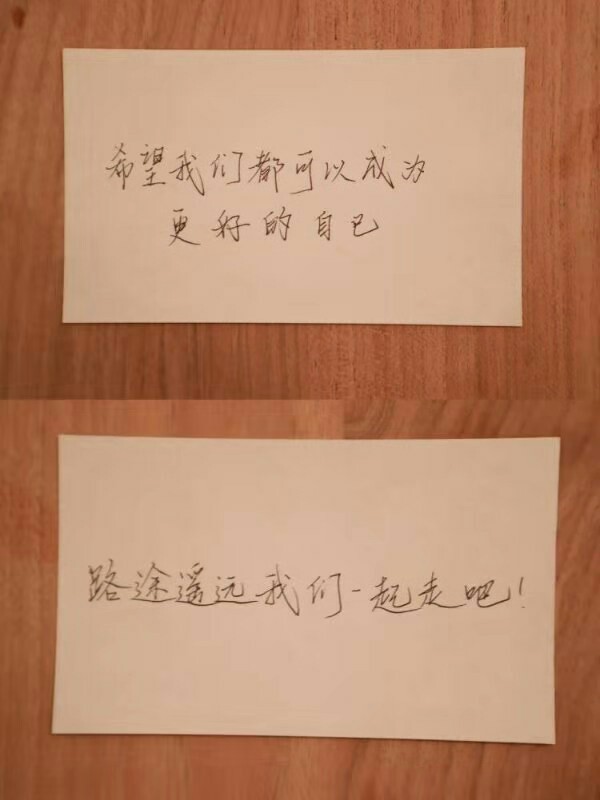 希望我们都可以成为
更好的自己
路途遥远我们一起走吧!